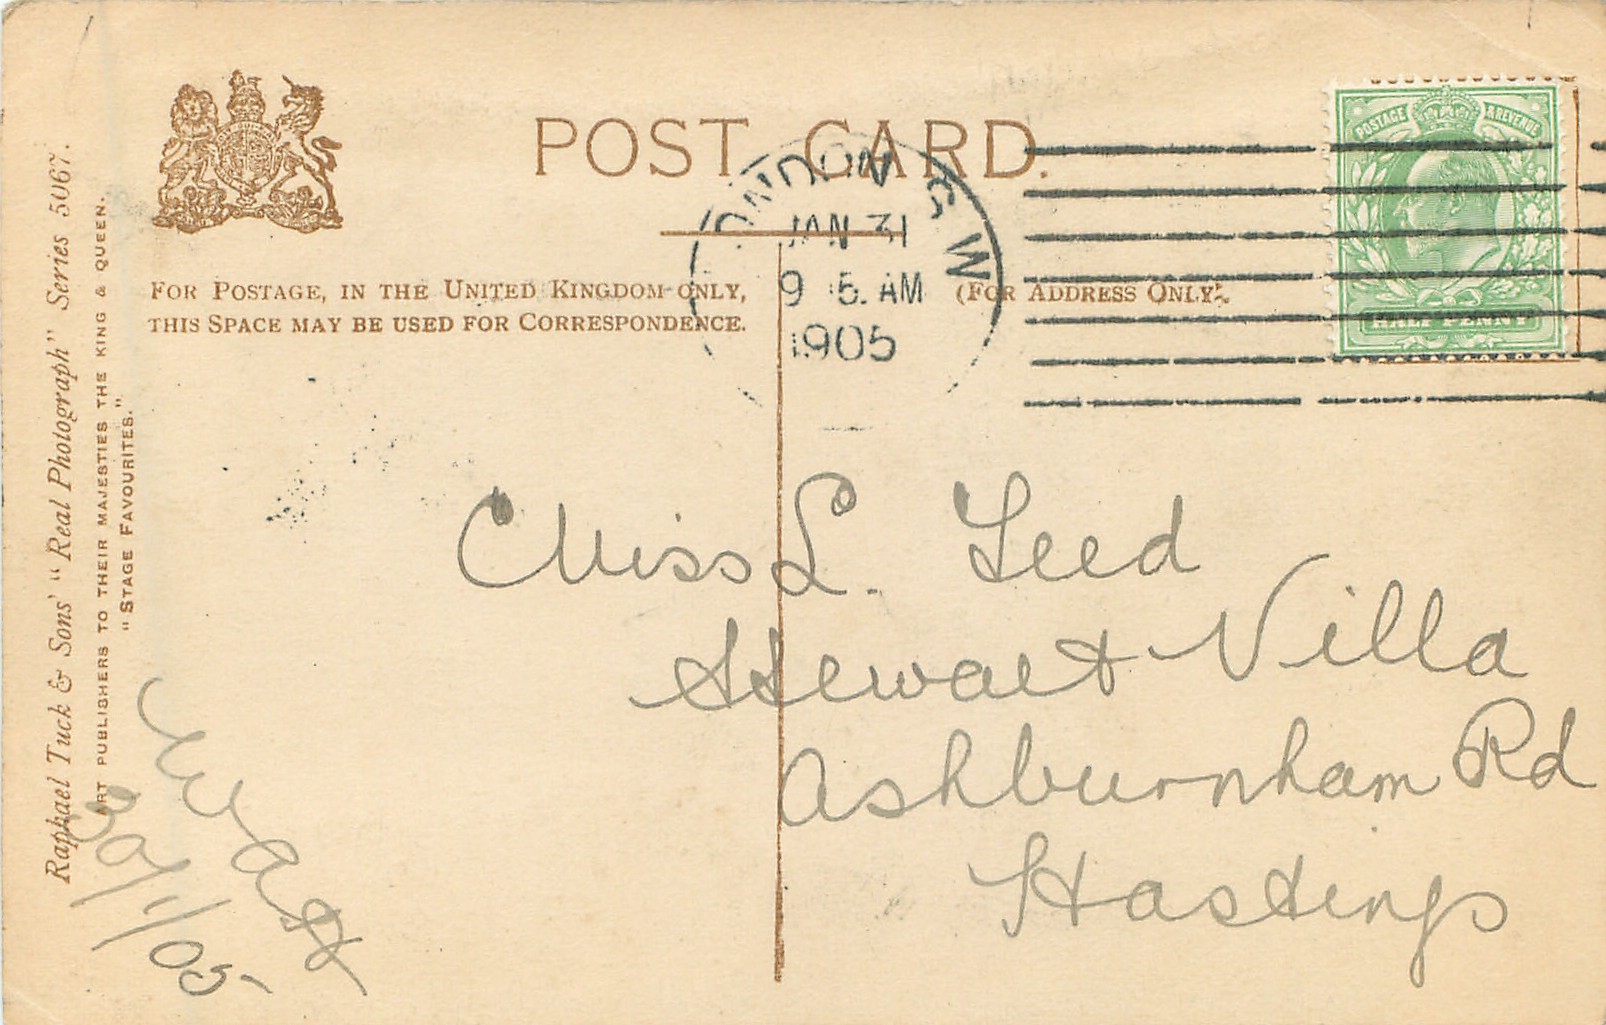 POST CARD.
LONDON S.W
JAN 31
9 5. AM
1905
POSTAGE & REVENUE
HALF PENNY
FOR POSTAGE, IN THE UNITED KINGDOM ONLY,
THIS SPACE MAY BE USED FOR CORRESPONDENCE.
(FOR ADDRESS ONLY).
Raphael Tuck & Sons' "Real Photograph" Series 5067.
ART PUBLISHERS TO THEIR MAJESTIES THE KING & QUEEN.
"STAGE FAVOURITES."
Miss L. Leed
Stewart Villa
Ashburnham Rd
Hastings
30/1/05